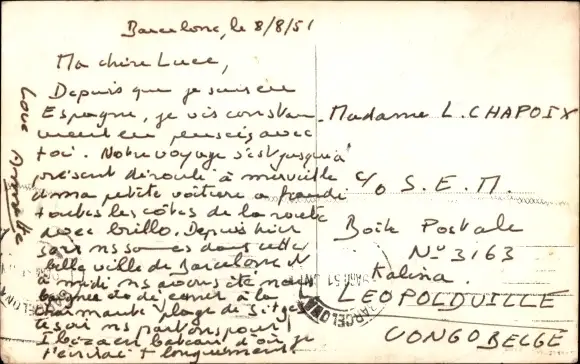 Barcelone, le 8/8/51
Ma chère Luce,
Depuis que je suis en
Espagne, je vis constam
ment en pensées avec
toi. Notre voyage s'est jusqu'à
présent déroulé à merveille
et ma petite voiture a franchi
toutes les côtes de la route
avec brillo. Depuis hier
soir ns sommes dans cette
belle ville de Barcelone et
à midi ns avons été nous
baigner à la
charmante plage de Sitges
ce soir ns partons pour
Ibiza en bateau d'où je
t'écrirai + longuement
Love Annette
Madame L. CHAPOIX
c/o S.E.M.
Boîte Postale
No 3163
Kalina.
LEOPOLDVILLE
CONGO BELGE
BARCELONA